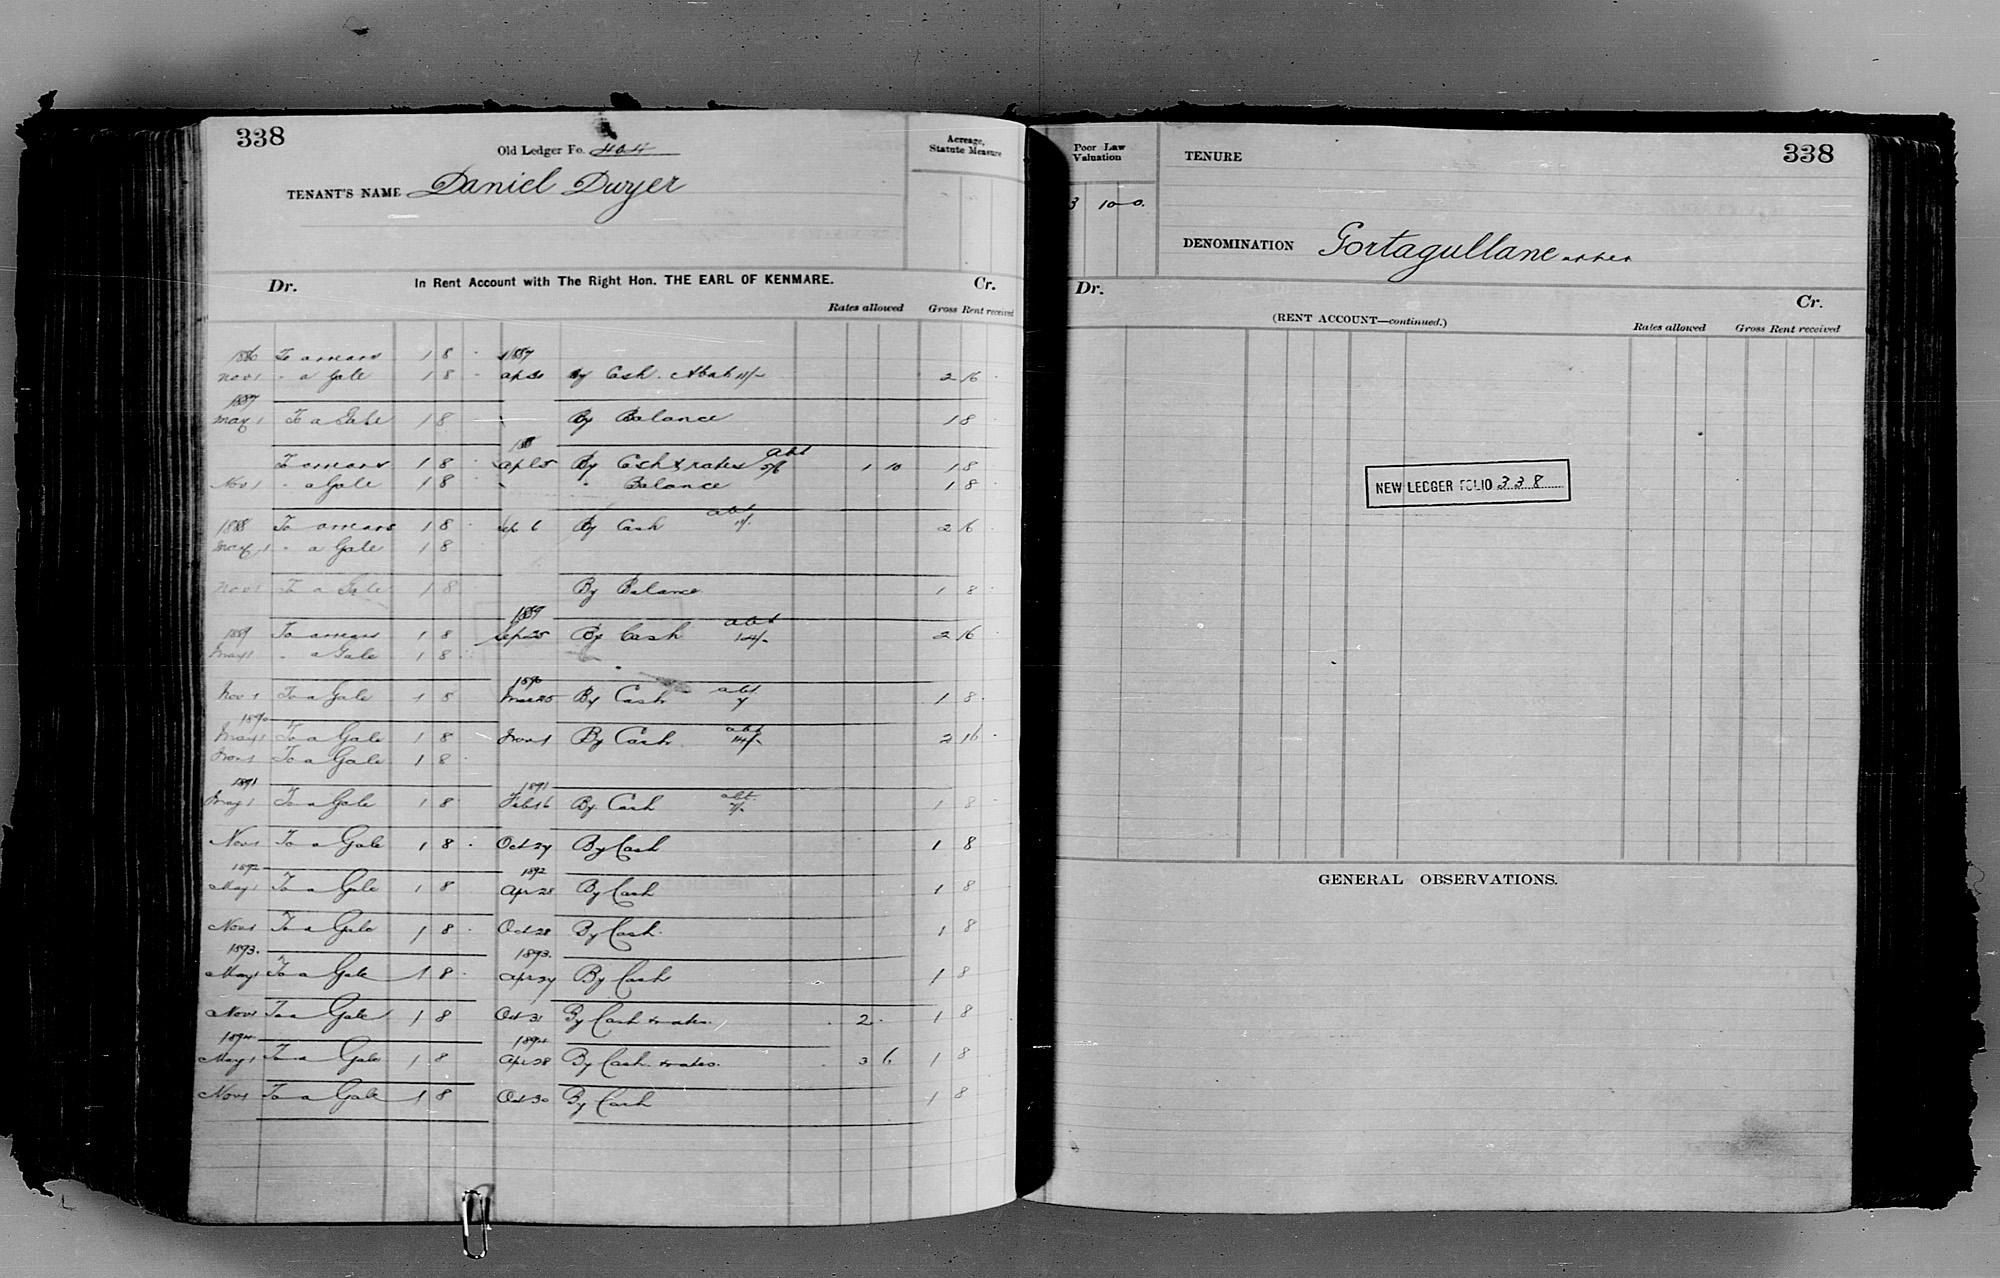 338
Old Ledger Fo. 404
TENANT'S NAME Daniel Dwyer
Acreage,
Statute Measure
Dr. In Rent Account with The Right Hon. THE EARL OF KENMARE. Cr.
Rates allowed Gross Rent received
1886 To arrears 1 8 - 1887
Nov 1 " a Gale 1 8 - Ap 30 By Cash. Abat 2 16 -
1887
May 1 To a Gale 1 8 By Balance 1 8
188
To arrears 1 8 - Apl 25 By Cash & rates abt 5/6 1 10 1 8
Nov 1 " a Gale 1 8 " Balance 1 8 -
1888 To arrears 1 8 - Sep 6 By Cash abt 2 16
May 1 " a Gale 1 8
Nov 1 To a Gale 1 8 By Balance 1 8 -
1889
1889 To arrears 1 8 Sep 25 By Cash abt 14/- 2 16
May 1 " a Gale 1 8
1890
Nov 1 To a Gale 1 8 Mar 25 By Cash abt 7/ 1 8 -
1890
May 1 To a Gale 1 8 Nov 1 By Cash abt 14/- 2 16 -
Nov 1 To a Gale 1 8 -
1891 1891
May 1 To a Gale 1 8 Feb 16 By Cash abt. 7/- 1 8
Nov 1 To a Gale 1 8 - Oct 27 By Cash 1 8
1892 1892
May 1 To a Gale 1 8 Apr 28 By Cash 1 8
Nov 1 To a Gale 1 8 - Oct 28 By Cash. 1 8
1893. 1893.
May 1 To a Gale 1 8 - Apr 27 By Cash 1 8
Nov 1 To a Gale 1 8 Oct 31 By Cash & rates. 2 - 1 8
1894 1894
May 1 To a Gale 1 8 Apr 28 By Cash & rates. 3 6 1 8
Nov 1 To a Gale 1 8 Oct 30 By Cash 1 8
Poor Law
Valuation
3 10 0.
TENURE
338
DENOMINATION Gortagullane
Dr. Cr.
(RENT ACCOUNT—continued.)
Rates allowed Gross Rent received
NEW LEDGER FOLIO 338
GENERAL OBSERVATIONS.